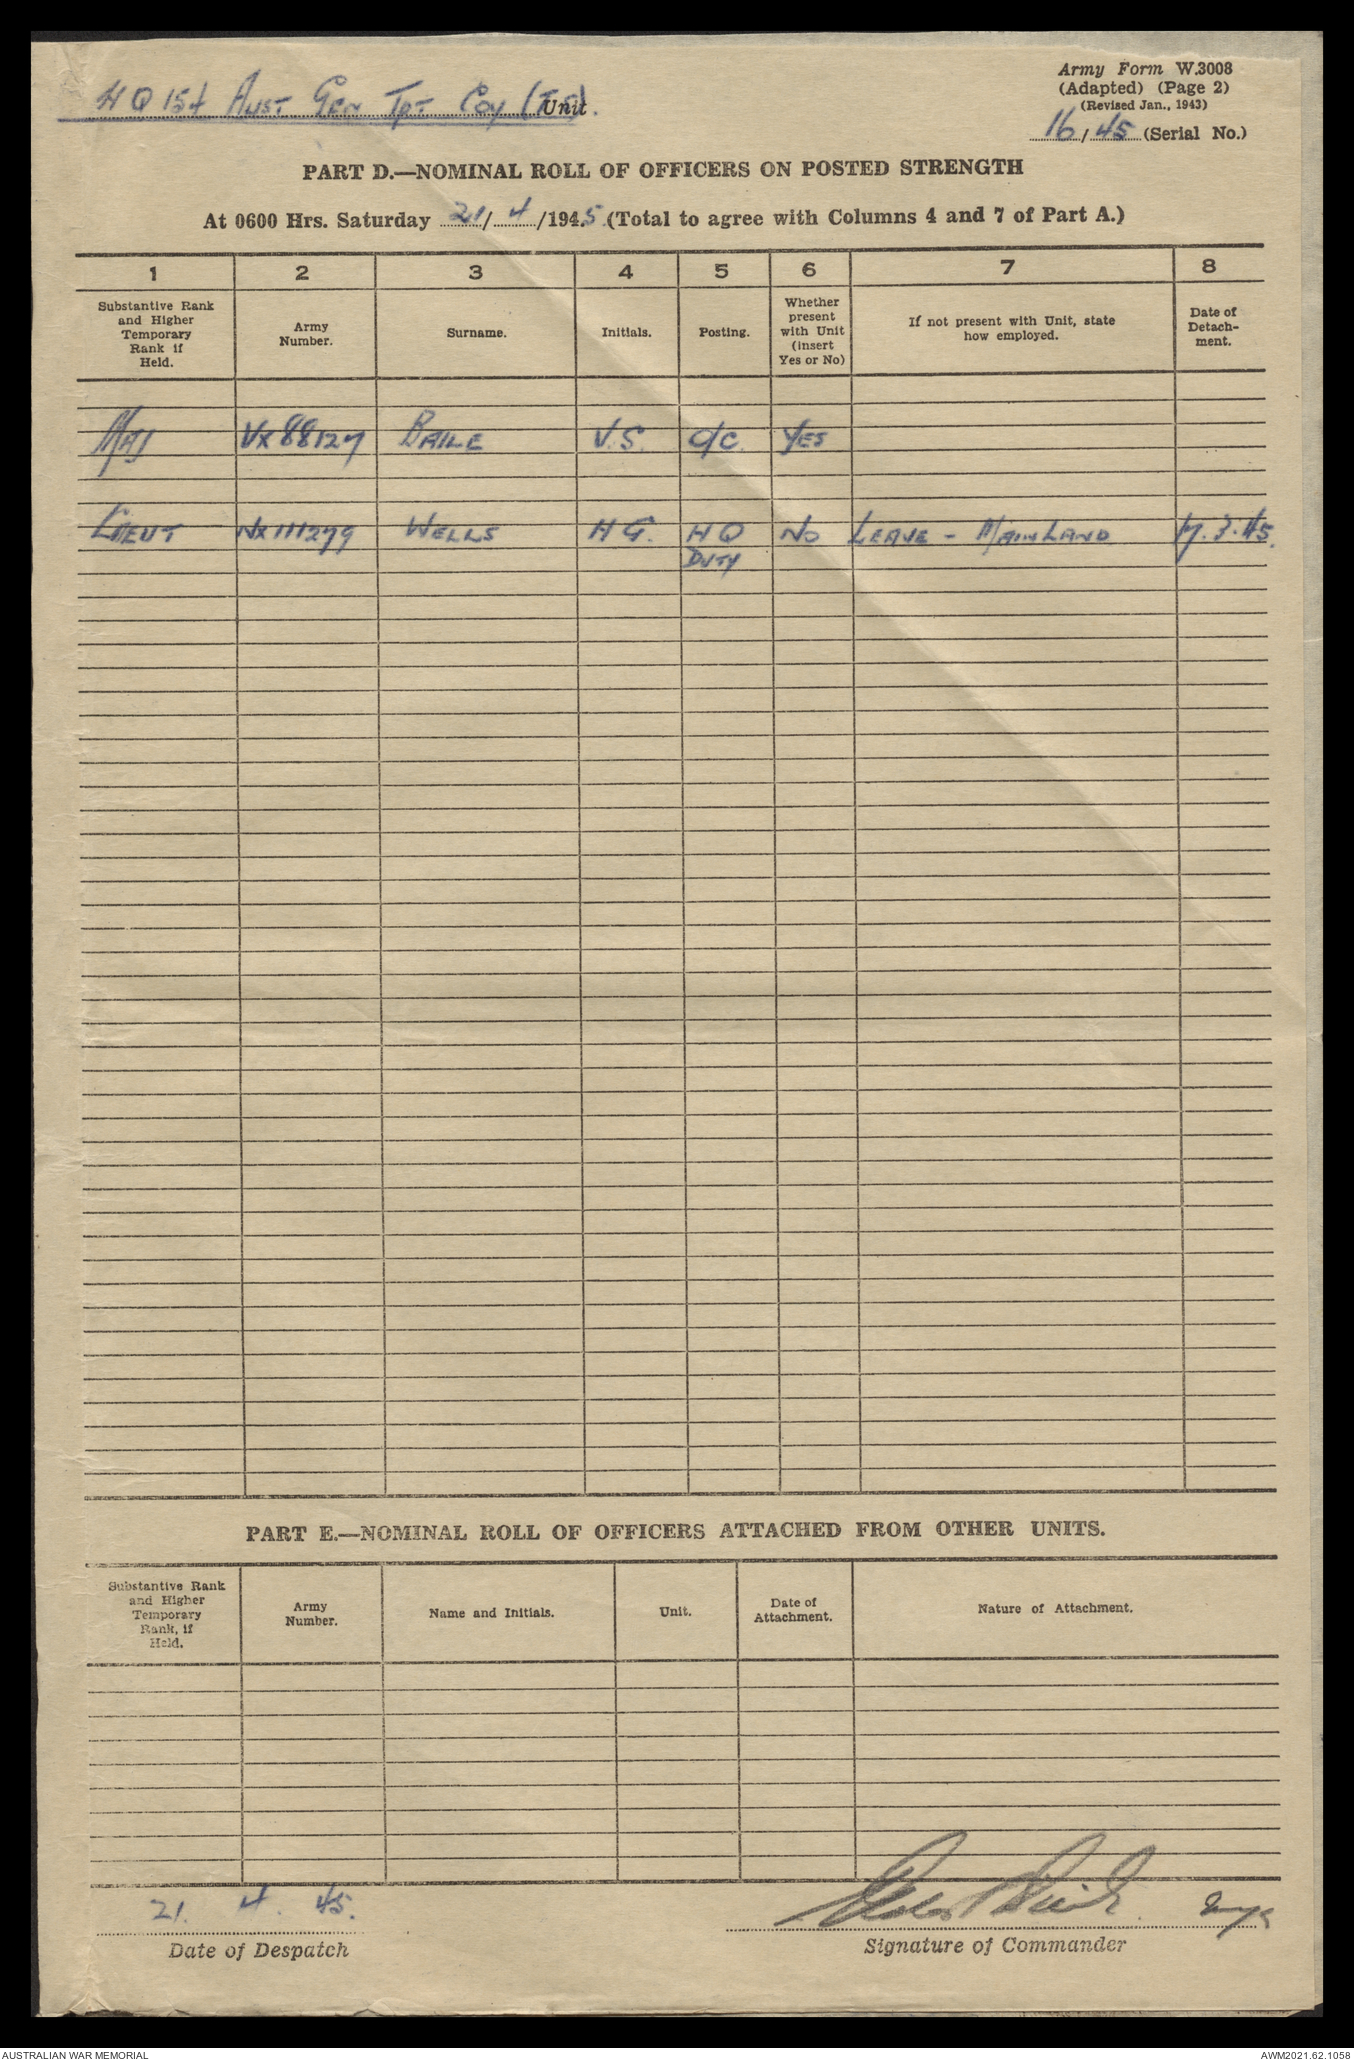 HQ 154 Aust Gen Tpt Coy (TF). Unit
Army Form W.3008
(Adapted) (Page 2)
(Revised Jan., 1943)
16/45 (Serial No.)
PART D.—NOMINAL ROLL OF OFFICERS ON POSTED STRENGTH
At 0600 Hrs. Saturday 21/4/1945 (Total to agree with Columns 4 and 7 of Part A.)
1 2 3 4 5 6 7 8
Substantive Rank and Higher Temporary Rank if Held.
Army Number.
Surname.
Initials.
Posting.
Whether present with Unit (insert Yes or No)
If not present with Unit, state how employed.
Date of Detach-ment.
Maj VX88127 BAILE V.S. O/C YES
LIEUT NX111279 WELLS H G. HQ DUTY NO LEAVE - MAINLAND 17.3.45.
PART E.—NOMINAL ROLL OF OFFICERS ATTACHED FROM OTHER UNITS.
Substantive Rank and Higher Temporary Rank, if Held.
Army Number.
Name and Initials.
Unit.
Date of Attachment.
Nature of Attachment.
21. 4. 45.
Date of Despatch
Signature of Commander
AUSTRALIAN WAR MEMORIAL
AWM2021.62.1058